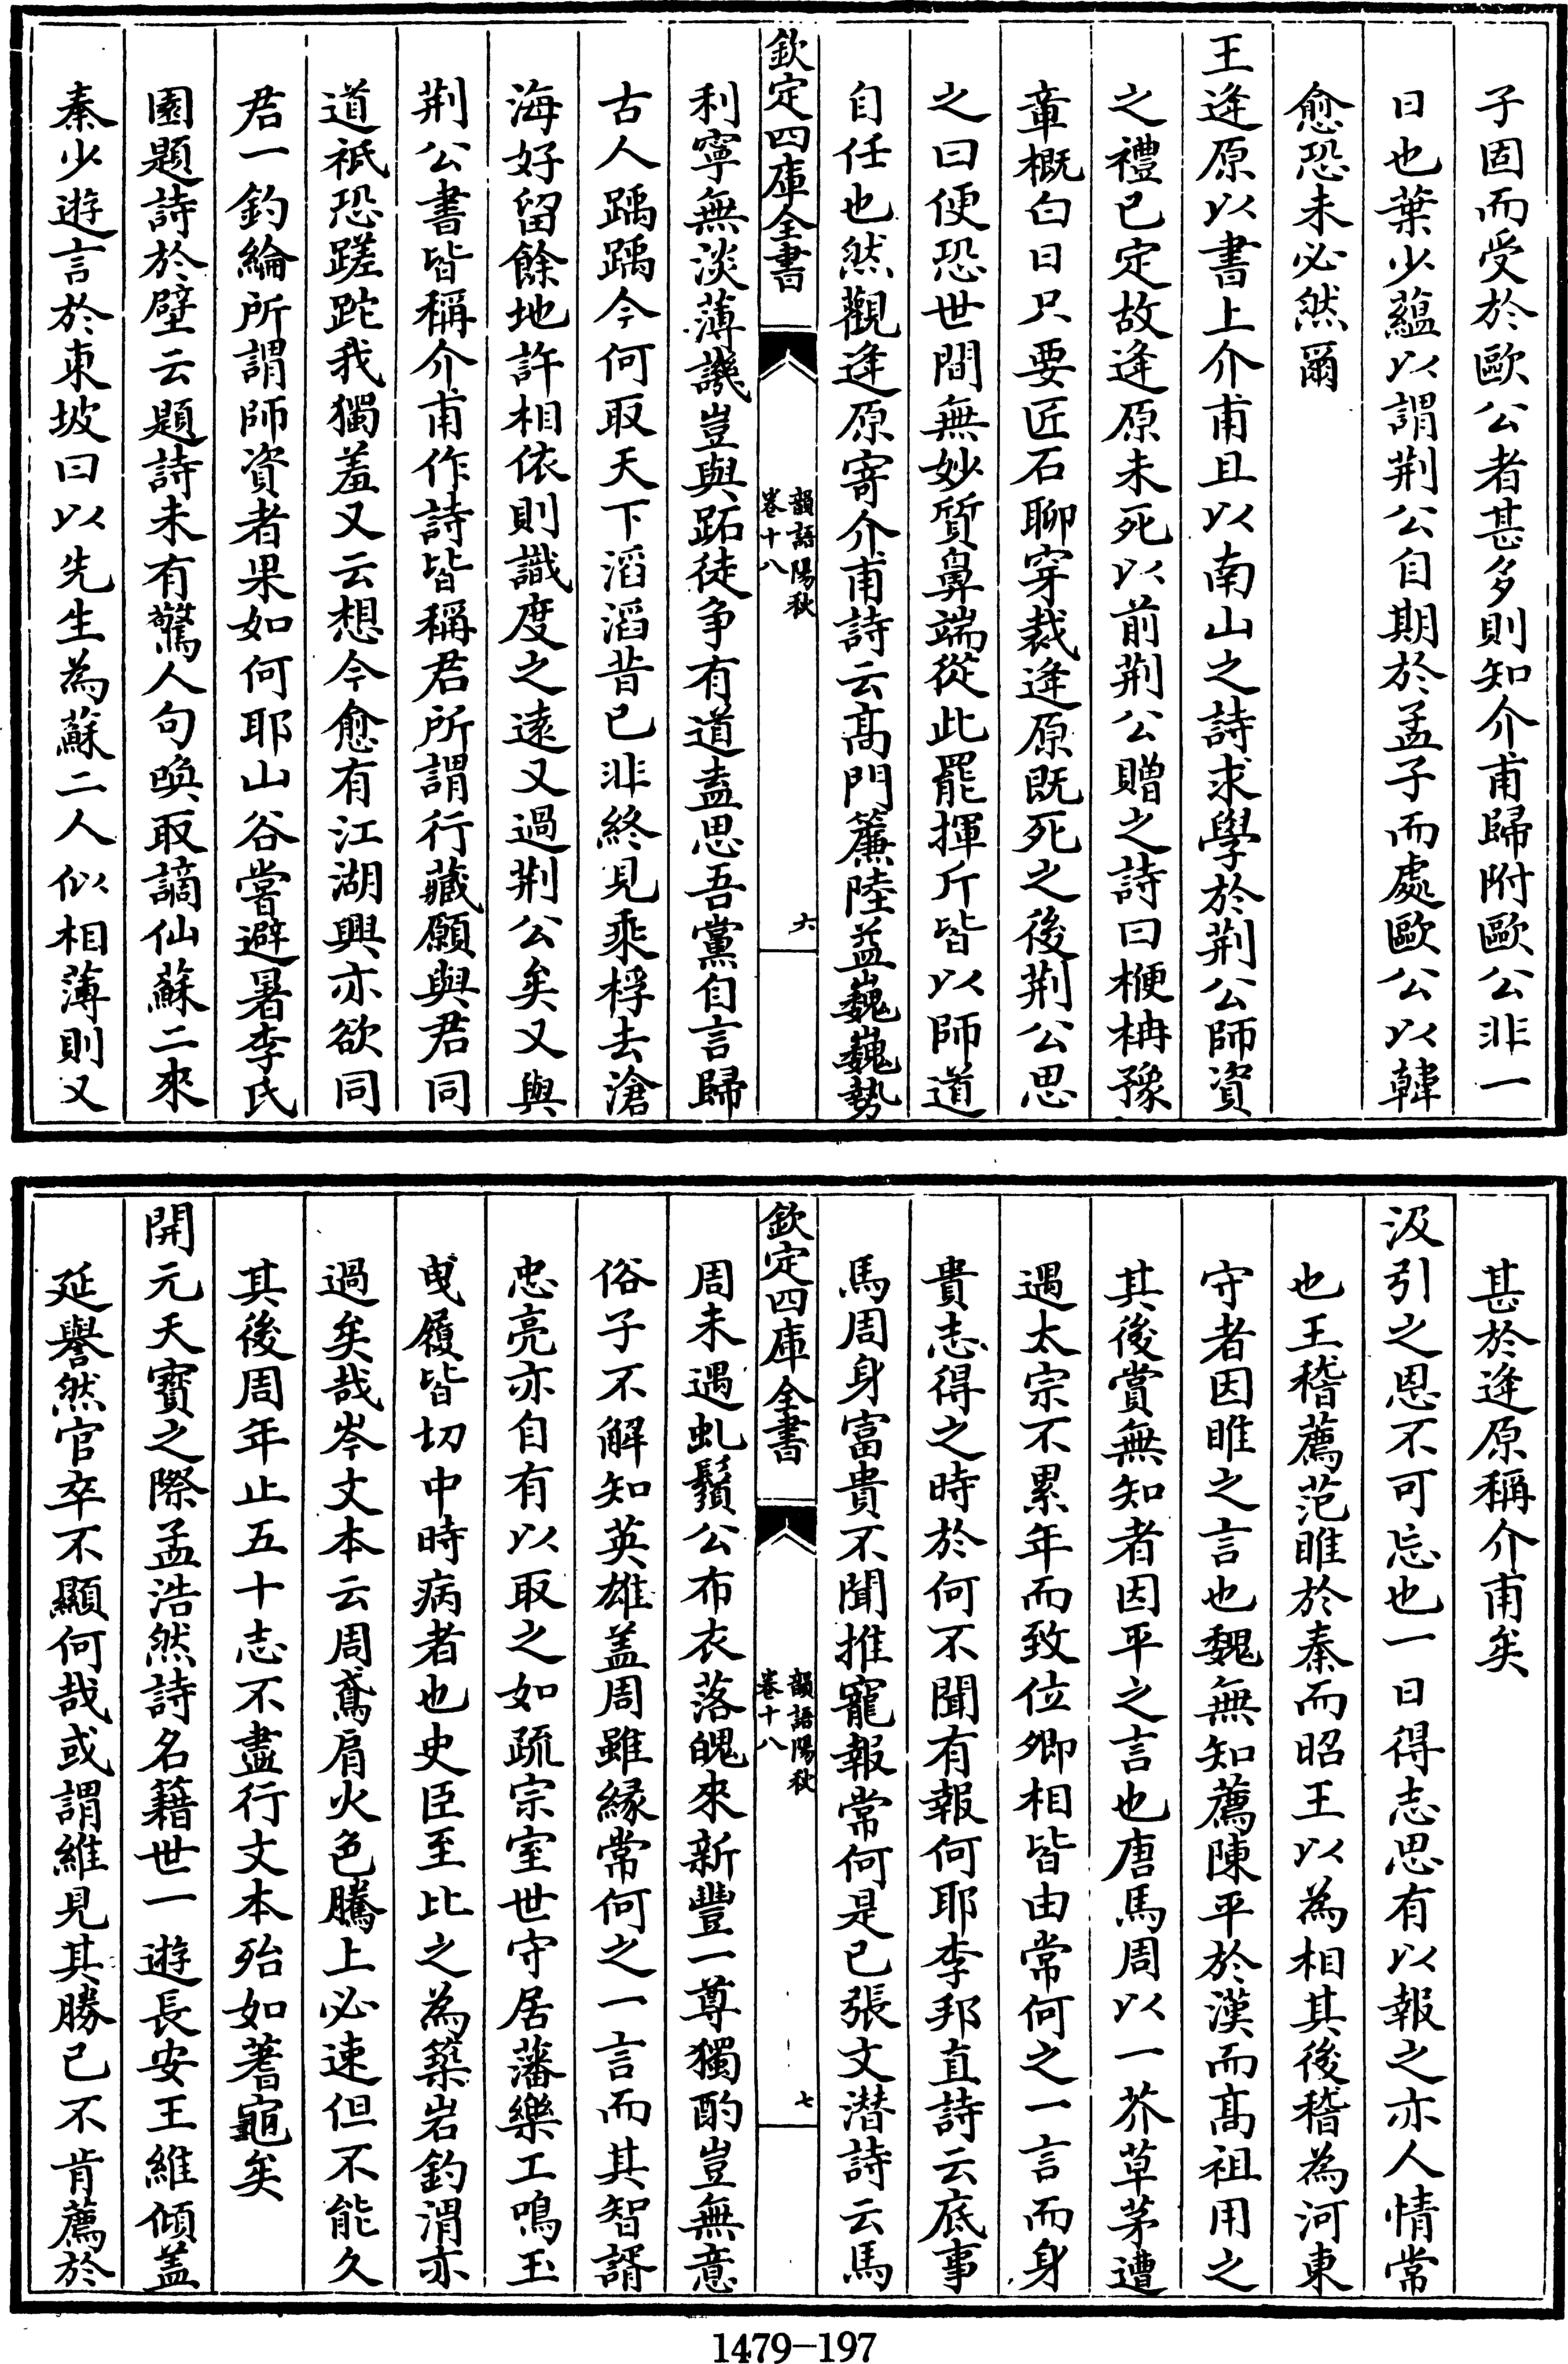 子固而受於歐公者甚多則知介甫歸附歐公非一
日也葉少蘊以謂荆公自期於孟子而處歐公以韓
愈恐未必然爾
王逄原以書上介甫且以南山之詩求學於荆公師資
之禮已定故逄原未死以前荆公贈之詩曰楩柟豫
章概白日只要匠石聊穿裁逄原既死之後荆公思
之曰便恐世間無妙質鼻端從此罷揮斤皆以師道
自任也然觀逄原寄介甫詩云髙門簾陸益巍巍勢
欽定四庫全書
韻語陽秋
卷十八
六
利寧無淡薄譏豈與跖徒争有道盍思吾黨自言歸
古人踽踽今何取天下滔滔昔已非終見乘桴去滄
海好留餘地許相依則識度之遠又過荆公矣又與
荆公書皆稱介甫作詩皆稱君所謂行藏願與君同
道祇恐蹉跎我獨羞又云想今愈有江湖興亦欲同
君一釣綸所謂師資者果如何耶山谷嘗避暑李氏
園題詩於壁云題詩未有驚人句喚取謫仙蘇二來
秦少遊言於東坡曰以先生為蘇二人似相薄則又
甚於逄原稱介甫矣
汲引之恩不可忘也一日得志思有以報之亦人情常
也王稽薦范睢於秦而昭王以為相其後稽為河東
守者因睢之言也魏無知薦陳平於漢而髙祖用之
其後賞無知者因平之言也唐馬周以一芥草茅遭
遇太宗不累年而致位卿相皆由常何之一言而身
貴志得之時於何不聞有報何耶李邦直詩云底事
馬周身富貴不聞推寵報常何是已張文潛詩云馬
欽定四庫全書
韻語陽秋
卷十八
七
周未遇虬鬚公布衣落魄來新豐一尊獨酌豈無意
俗子不解知英雄盖周雖緣常何之一言而其智諝
忠亮亦自有以取之如疏宗室世守居藩樂工鳴玉
曵履皆切中時病者也史臣至比之為築岩釣渭亦
過矣哉岑文本云周鳶肩火色騰上必速但不能久
其後周年止五十志不盡行文本殆如蓍龜矣
開元天寶之際孟浩然詩名籍世一遊長安王維傾盖
延譽然官卒不顯何哉或謂維見其勝已不肯薦於
1479-197